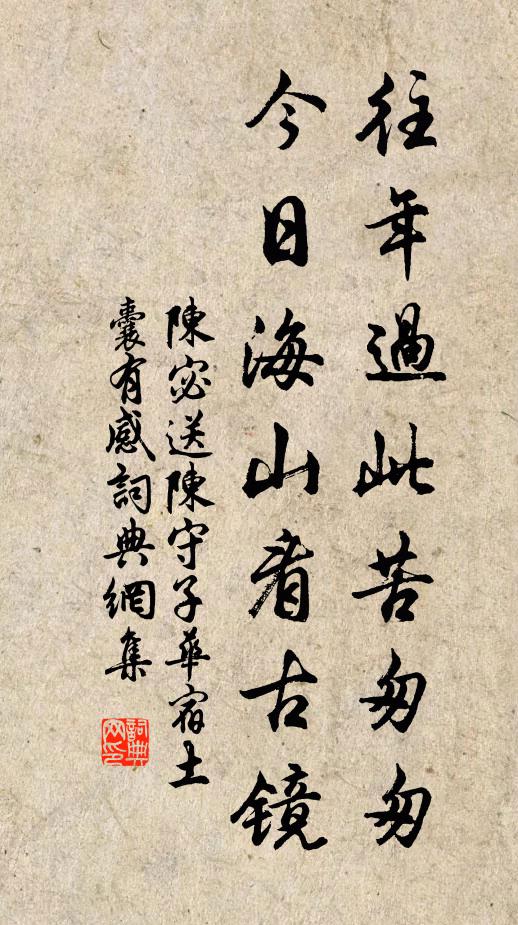 往年過此苦匆匆
今日海山看古镜
陳宓送陳守子華宿土
囊有感詞典網集
詞典网印